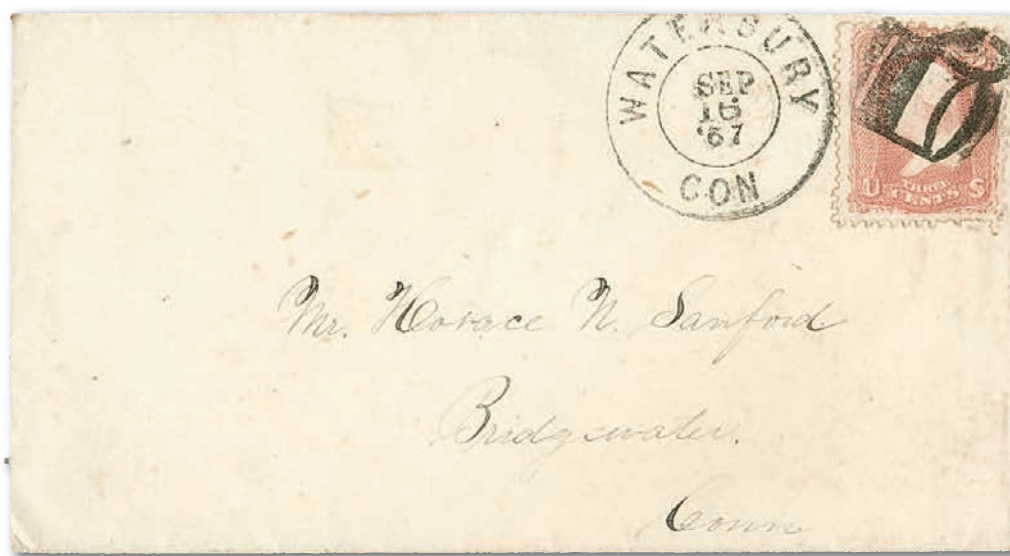 WATERBURY
SEP
16
'67
CON
U THREE CENTS S
Mr. Horace N. Sanford
Bridgewater.
Conn